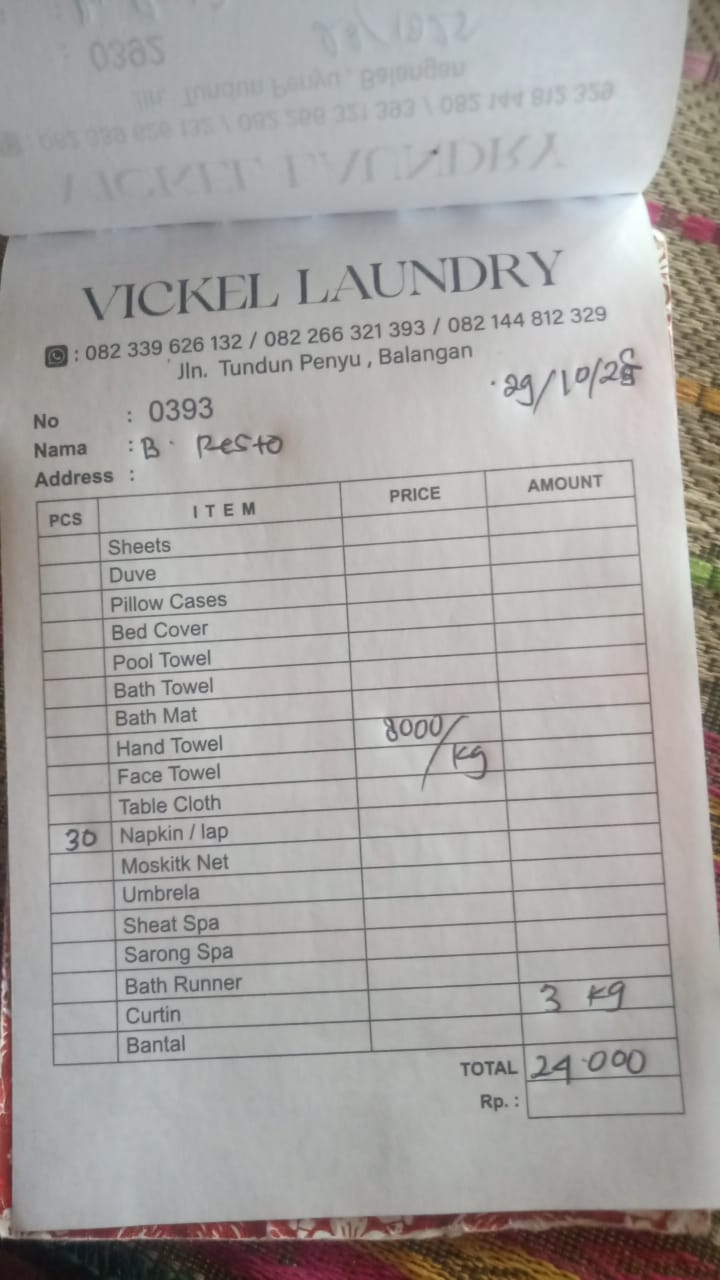 0392
Jln. Tundun Penyu , Balangan
: 082 339 626 132 / 082 266 321 393 / 082 144 812 329
VICKEL LAUNDRY
VICKEL LAUNDRY
: 082 339 626 132 / 082 266 321 393 / 082 144 812 329
Jln. Tundun Penyu , Balangan
29/10/25
No : 0393
Nama : B. Resto
Address :
PCS ITEM PRICE AMOUNT
Sheets
Duve
Pillow Cases
Bed Cover
Pool Towel
Bath Towel
Bath Mat
Hand Towel 8000/kg
Face Towel
Table Cloth
30 Napkin / lap
Moskitk Net
Umbrela
Sheat Spa
Sarong Spa
Bath Runner
Curtin 3 kg
Bantal
TOTAL 24.000
Rp. :